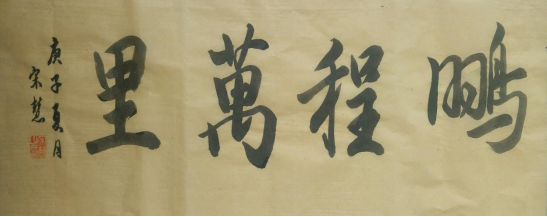 鵬程萬里
庚子夏月
宗慧